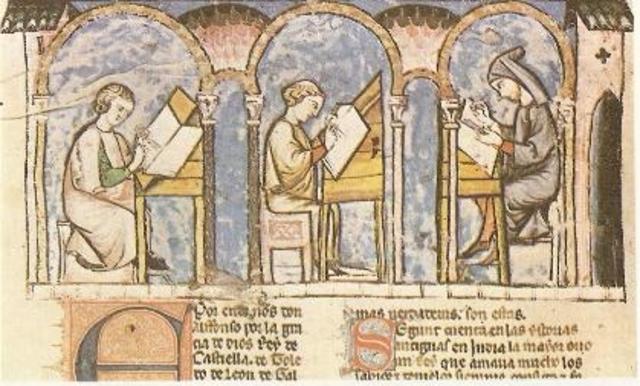 E Por ende nos don
alffonso por la gra
cia de dios Rey de
Castiella. de Tole
do de Leon de Gal
mas uerdaderas. son estas.
Segunt cuenta en las ystorias
antiguas en India la mayor ouo
un Rey que amaua mucho los
sabios e tenielos siempre